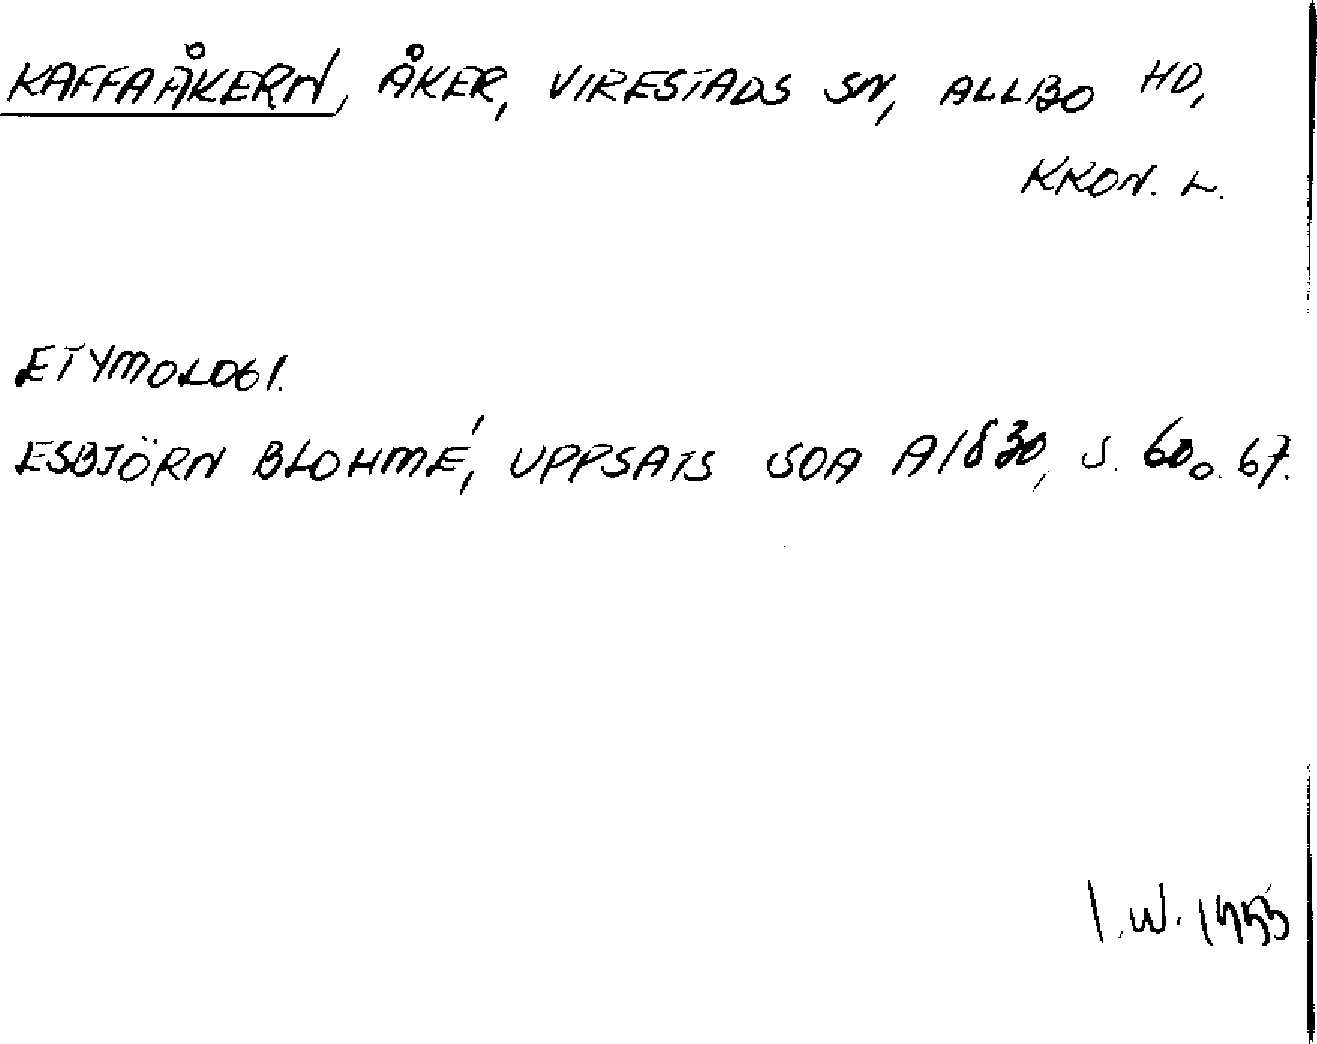 KAFFAÅKERN, ÅKER, VIRESTADS SN, ALLBO HD,
KRON. L.
ETYMOLOGI.
ESBJÖRN BLOHMÉ, UPPSATS SOA A1830, S. 60 o. 67.
I.W. 1955